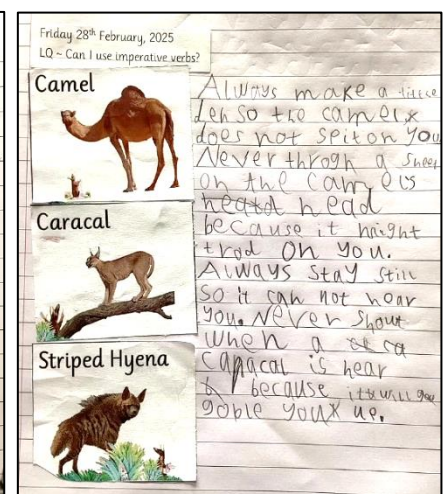 Friday 28th February, 2025
LQ ~ Can I use imperative verbs?
Camel
Caracal
Striped Hyena
Always make a little
den so the camel
does not spit on you
Never throgh a sheet
on the camels
head
because it might
trod on you.
Always stay still
so it can not hear
you. Never shout
when a
caracal is near
because it will
goble you up.